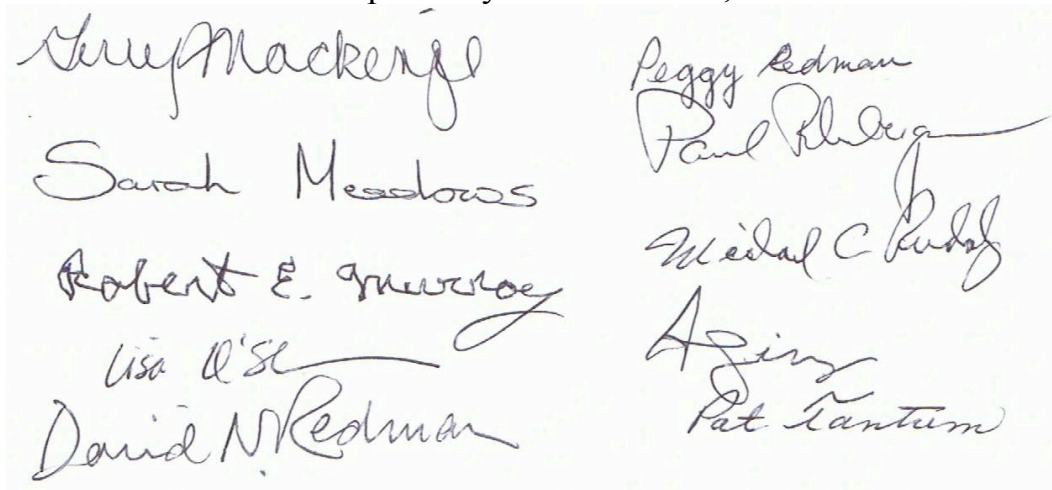 Terry Mackenzie
Sarah Meadows
Robert E. Murray
Lisa O'S
David N. Redman
Peggy Redman
Paul
Michael C Rudolf
Pat Tantum